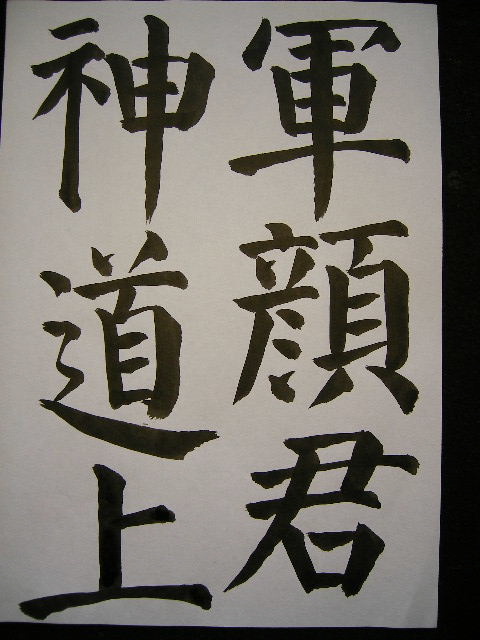 軍顔君
神道上